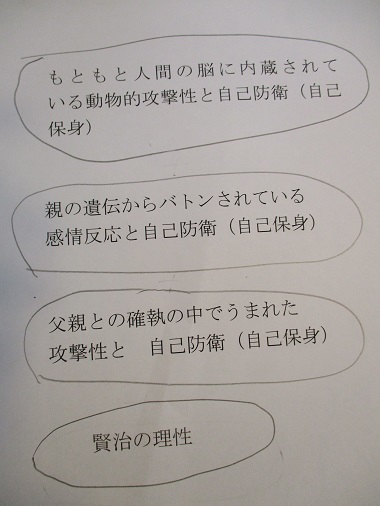 もともと人間の脳に内蔵されて
いる動物的攻撃性と自己防衛（自己
保身）
親の遺伝からバトンされている
感情反応と自己防衛（自己保身）
父親との確執の中でうまれた
攻撃性と　自己防衛（自己保身）
賢治の理性